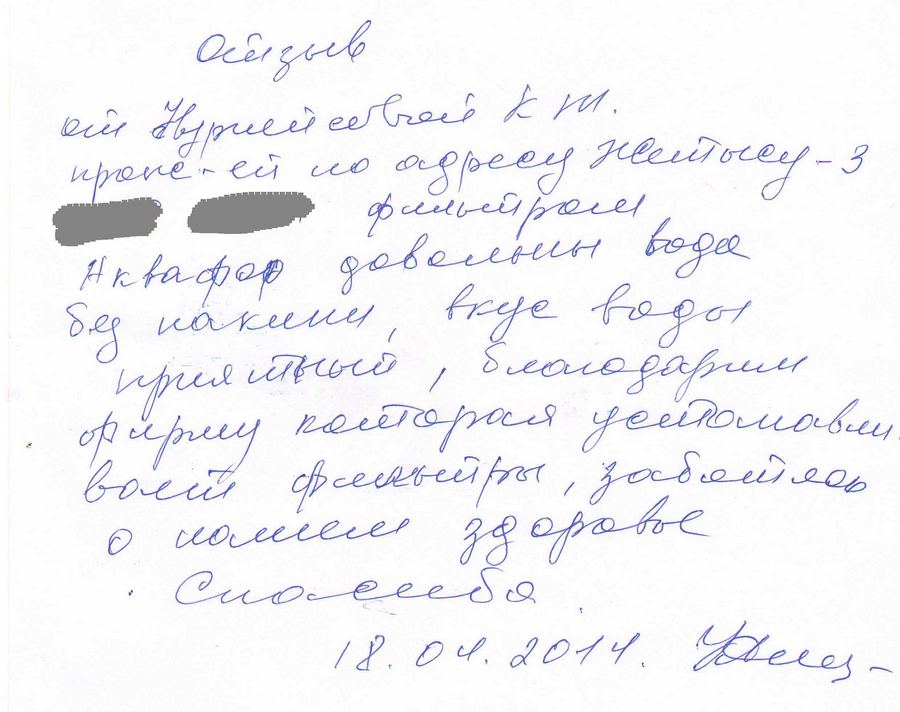 Отзыв
от К Ж.
прож-ей по адресу Жетысу-3
фильтром
Аквафор довольны вода
без накипи, вкус воды
приятный, благодарим
фирму которая устонавли
вает фильтры, заботясь
о нашем здоровье
Спасибо
18.04.2014.